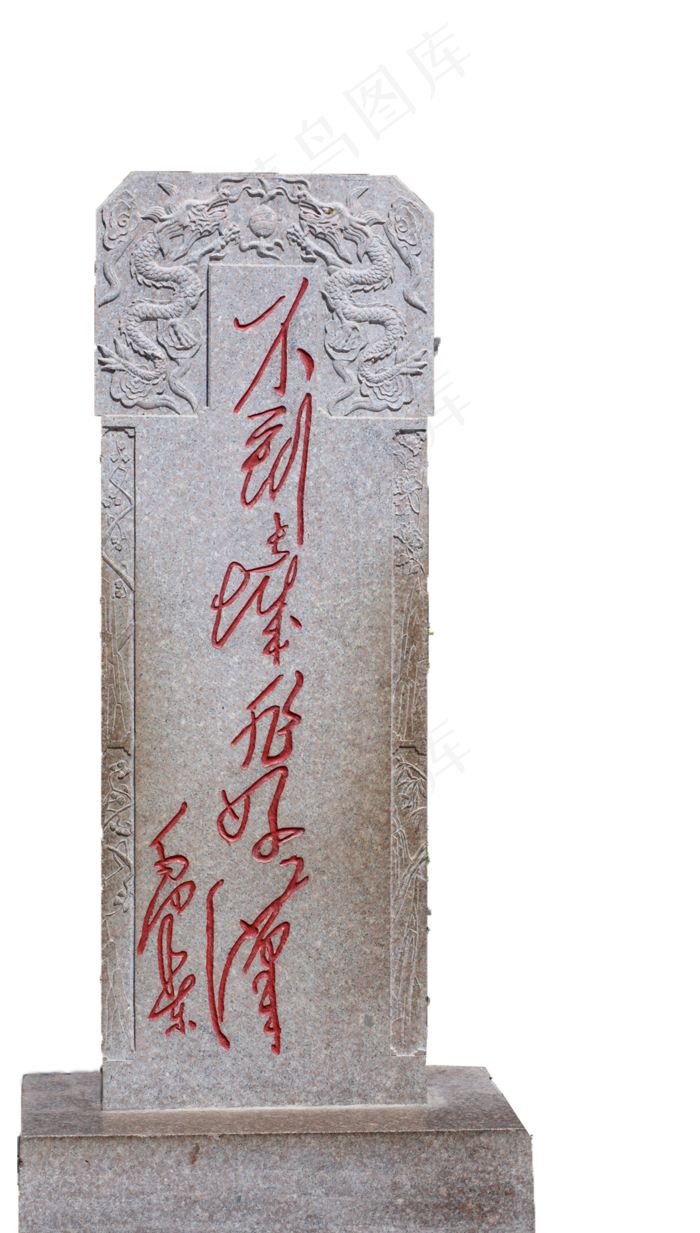 不到长城非好汉
毛泽东
菜鸟图库
库
库